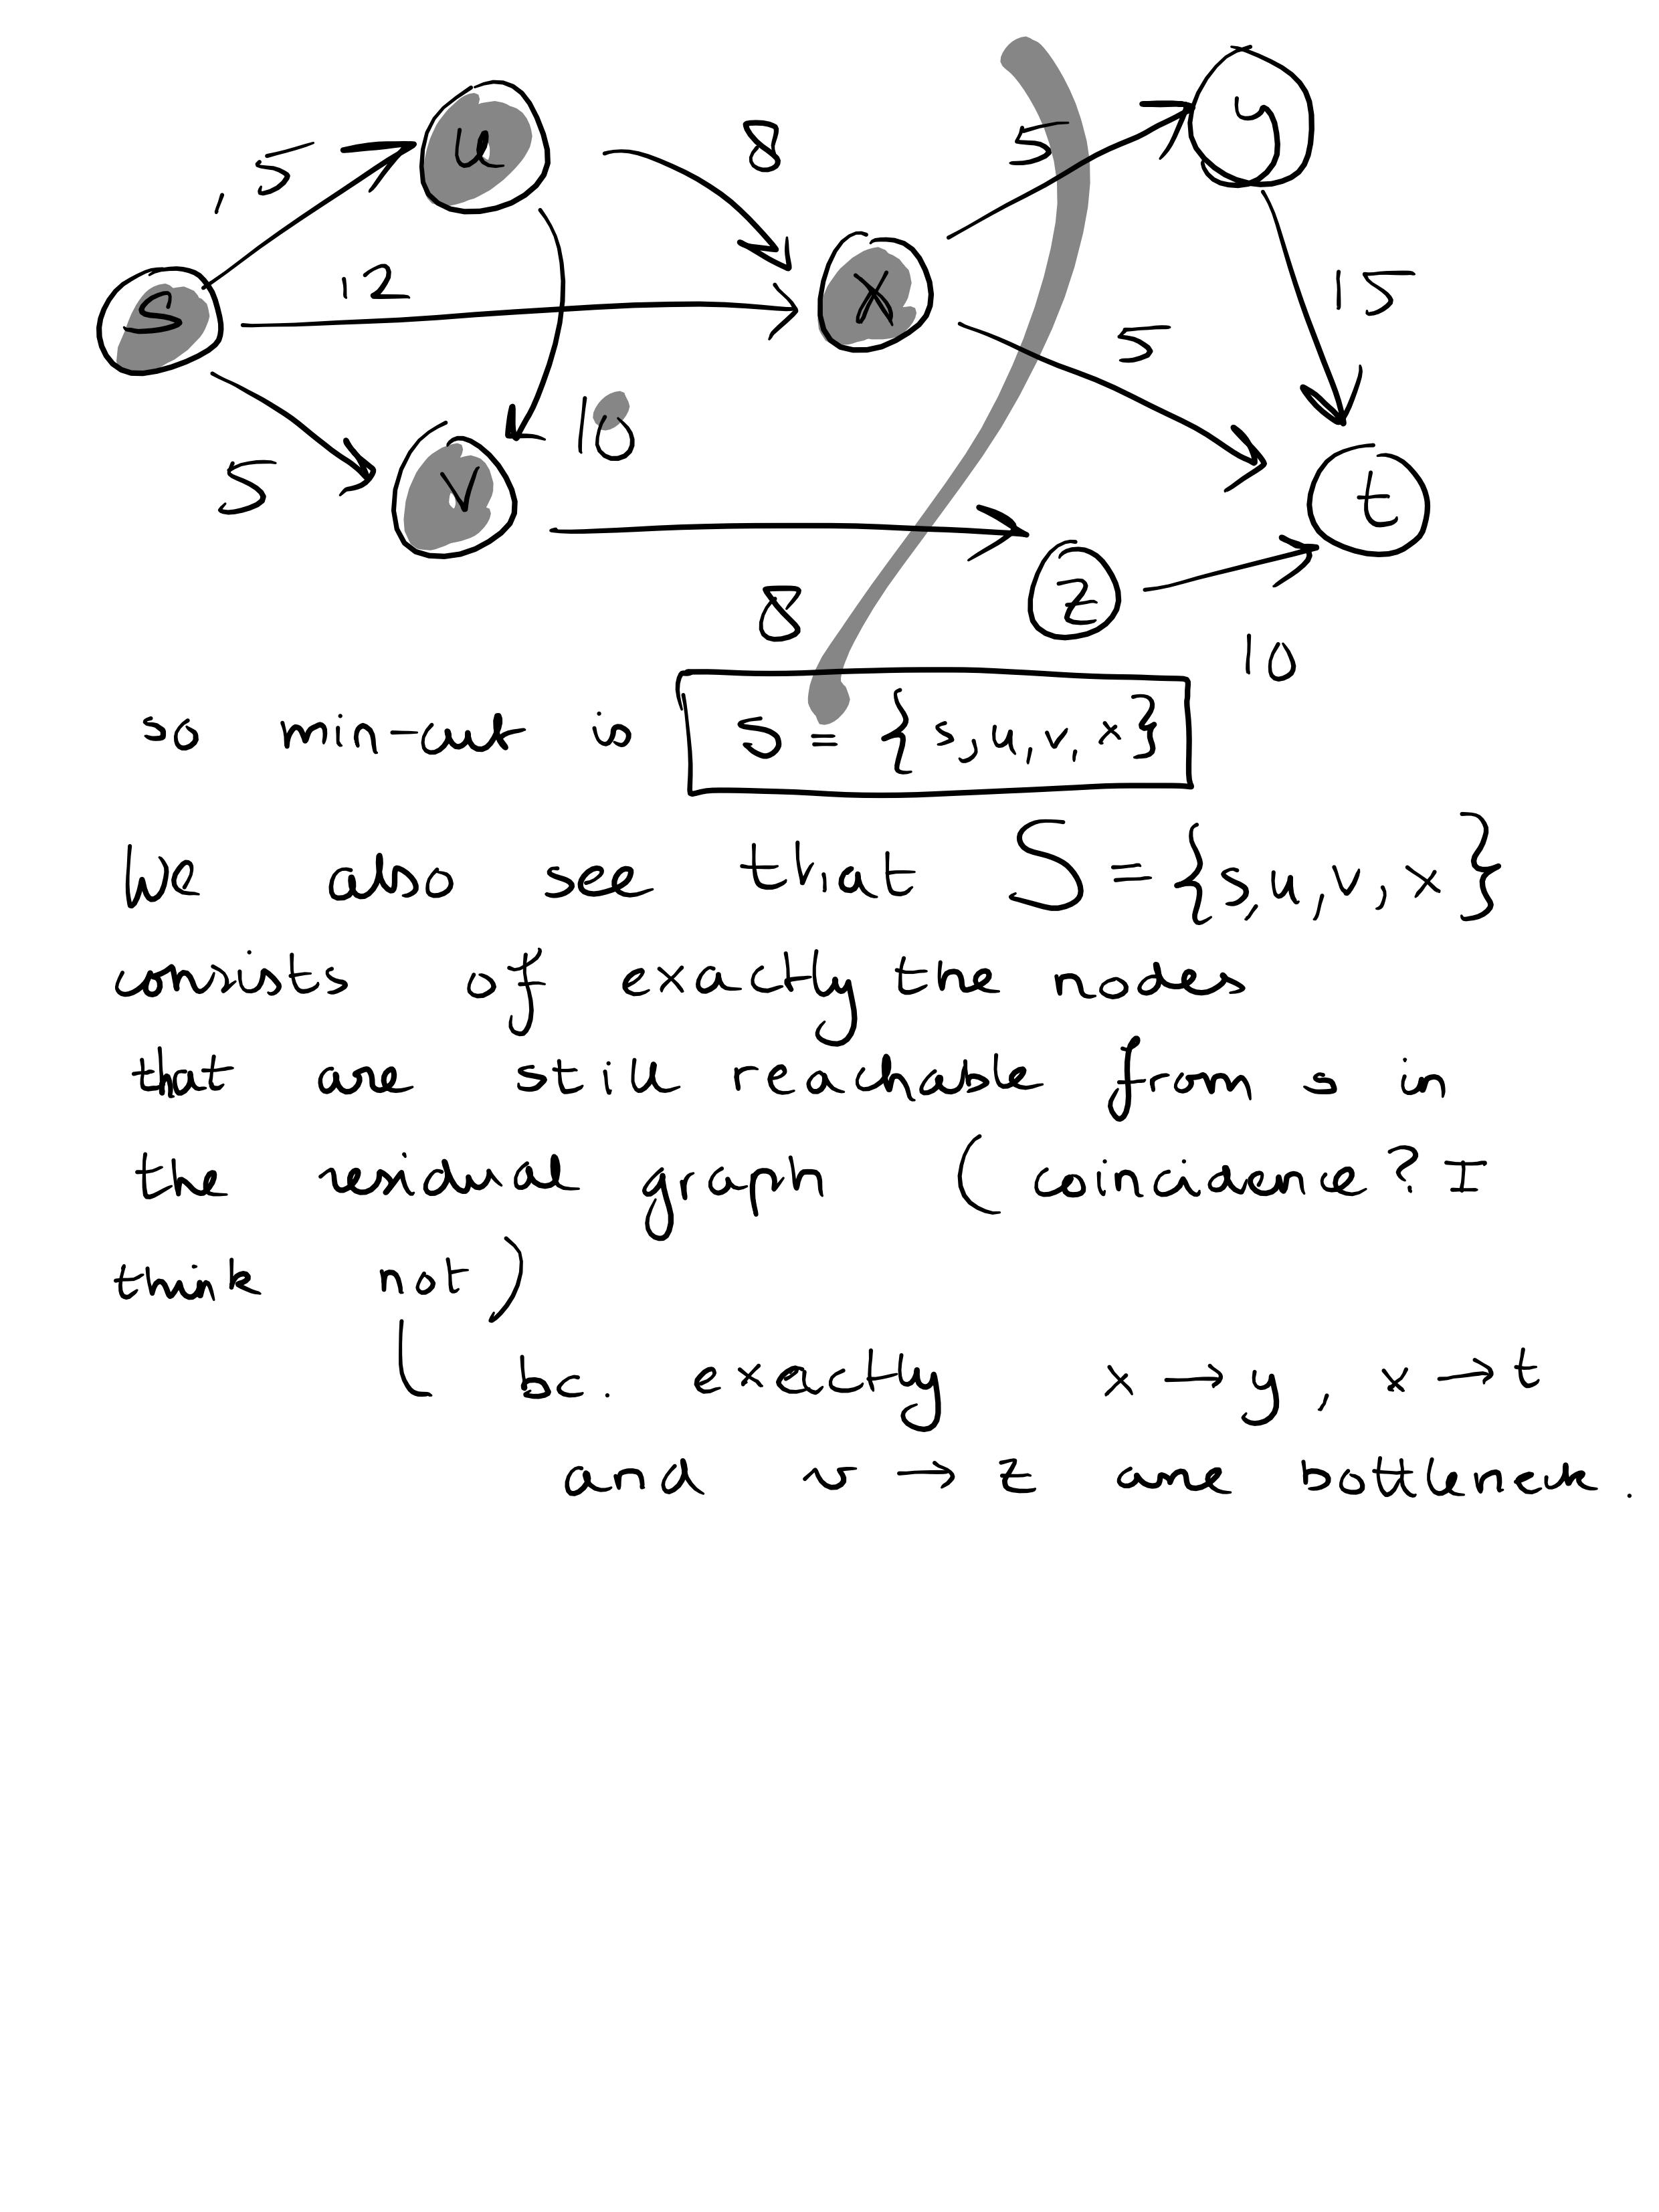 8 5 y
, 5 u
12 15
s x 5
5 10
v t
z
8 10
so min-cut is S = {s,u,v,x}
We also see that S = {s,u,v,x}
consists of exactly the nodes
that are still reachable from s in
the residual graph (coincidence? I
think not)
bc. exactly x → y, x → t
and v → z are bottleneck.